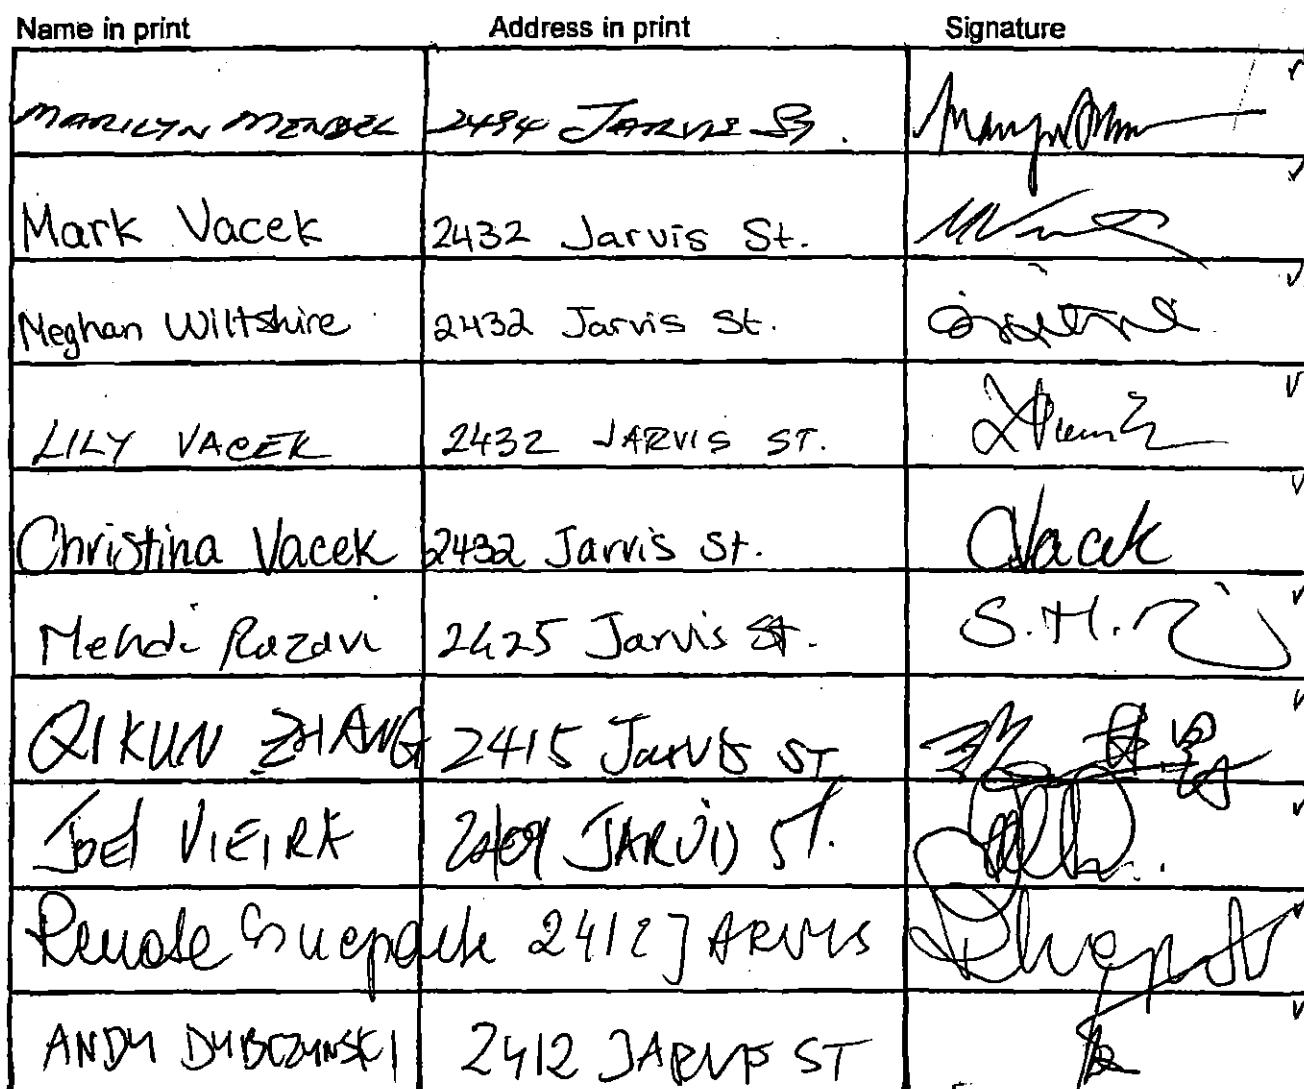 Name in print Address in print Signature
MARILYN MENDEL 2494 JARVIS St.
Mark Vacek 2432 Jarvis St.
Meghan Wiltshire 2432 Jarvis St.
LILY VACEK 2432 JARVIS ST.
Christina Vacek 2432 Jarvis St. CVacek
Mehdi Razavi 2425 Jarvis St. S.M.
QIKUN ZHANG 2415 Jarvis ST
JOEL VIEIRA JARVIS ST.
2412 JARVIS
ANDY DYBCZYNSKI 2412 JARVIS ST